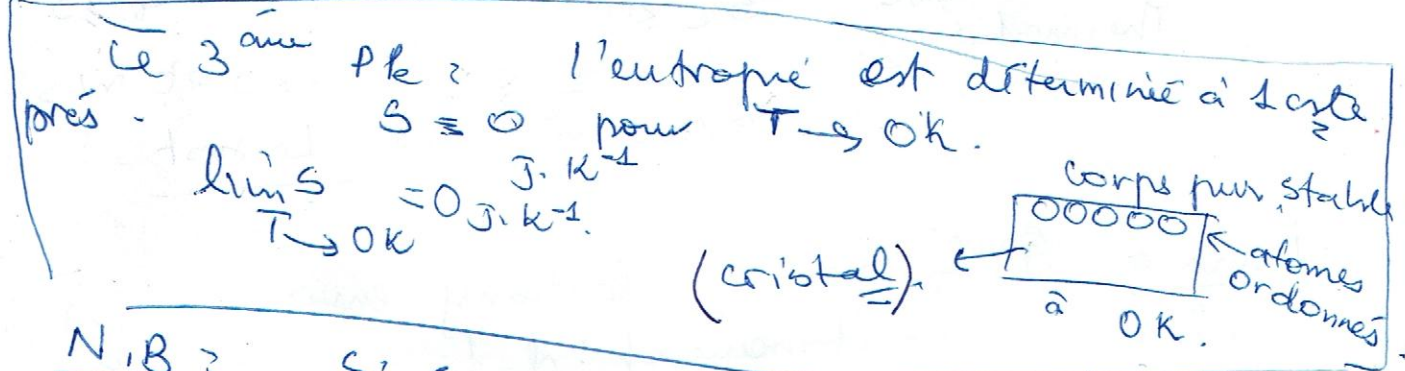 Le 3ème Ple : l'entropie est déterminié à 1 cste
près.
S = 0 pour T → 0K.
J. K⁻¹
lim S = 0 J. K⁻¹.
T → 0K
corps pur stable
atomes
ordonnés
(cristal).
à 0K.
N.B :